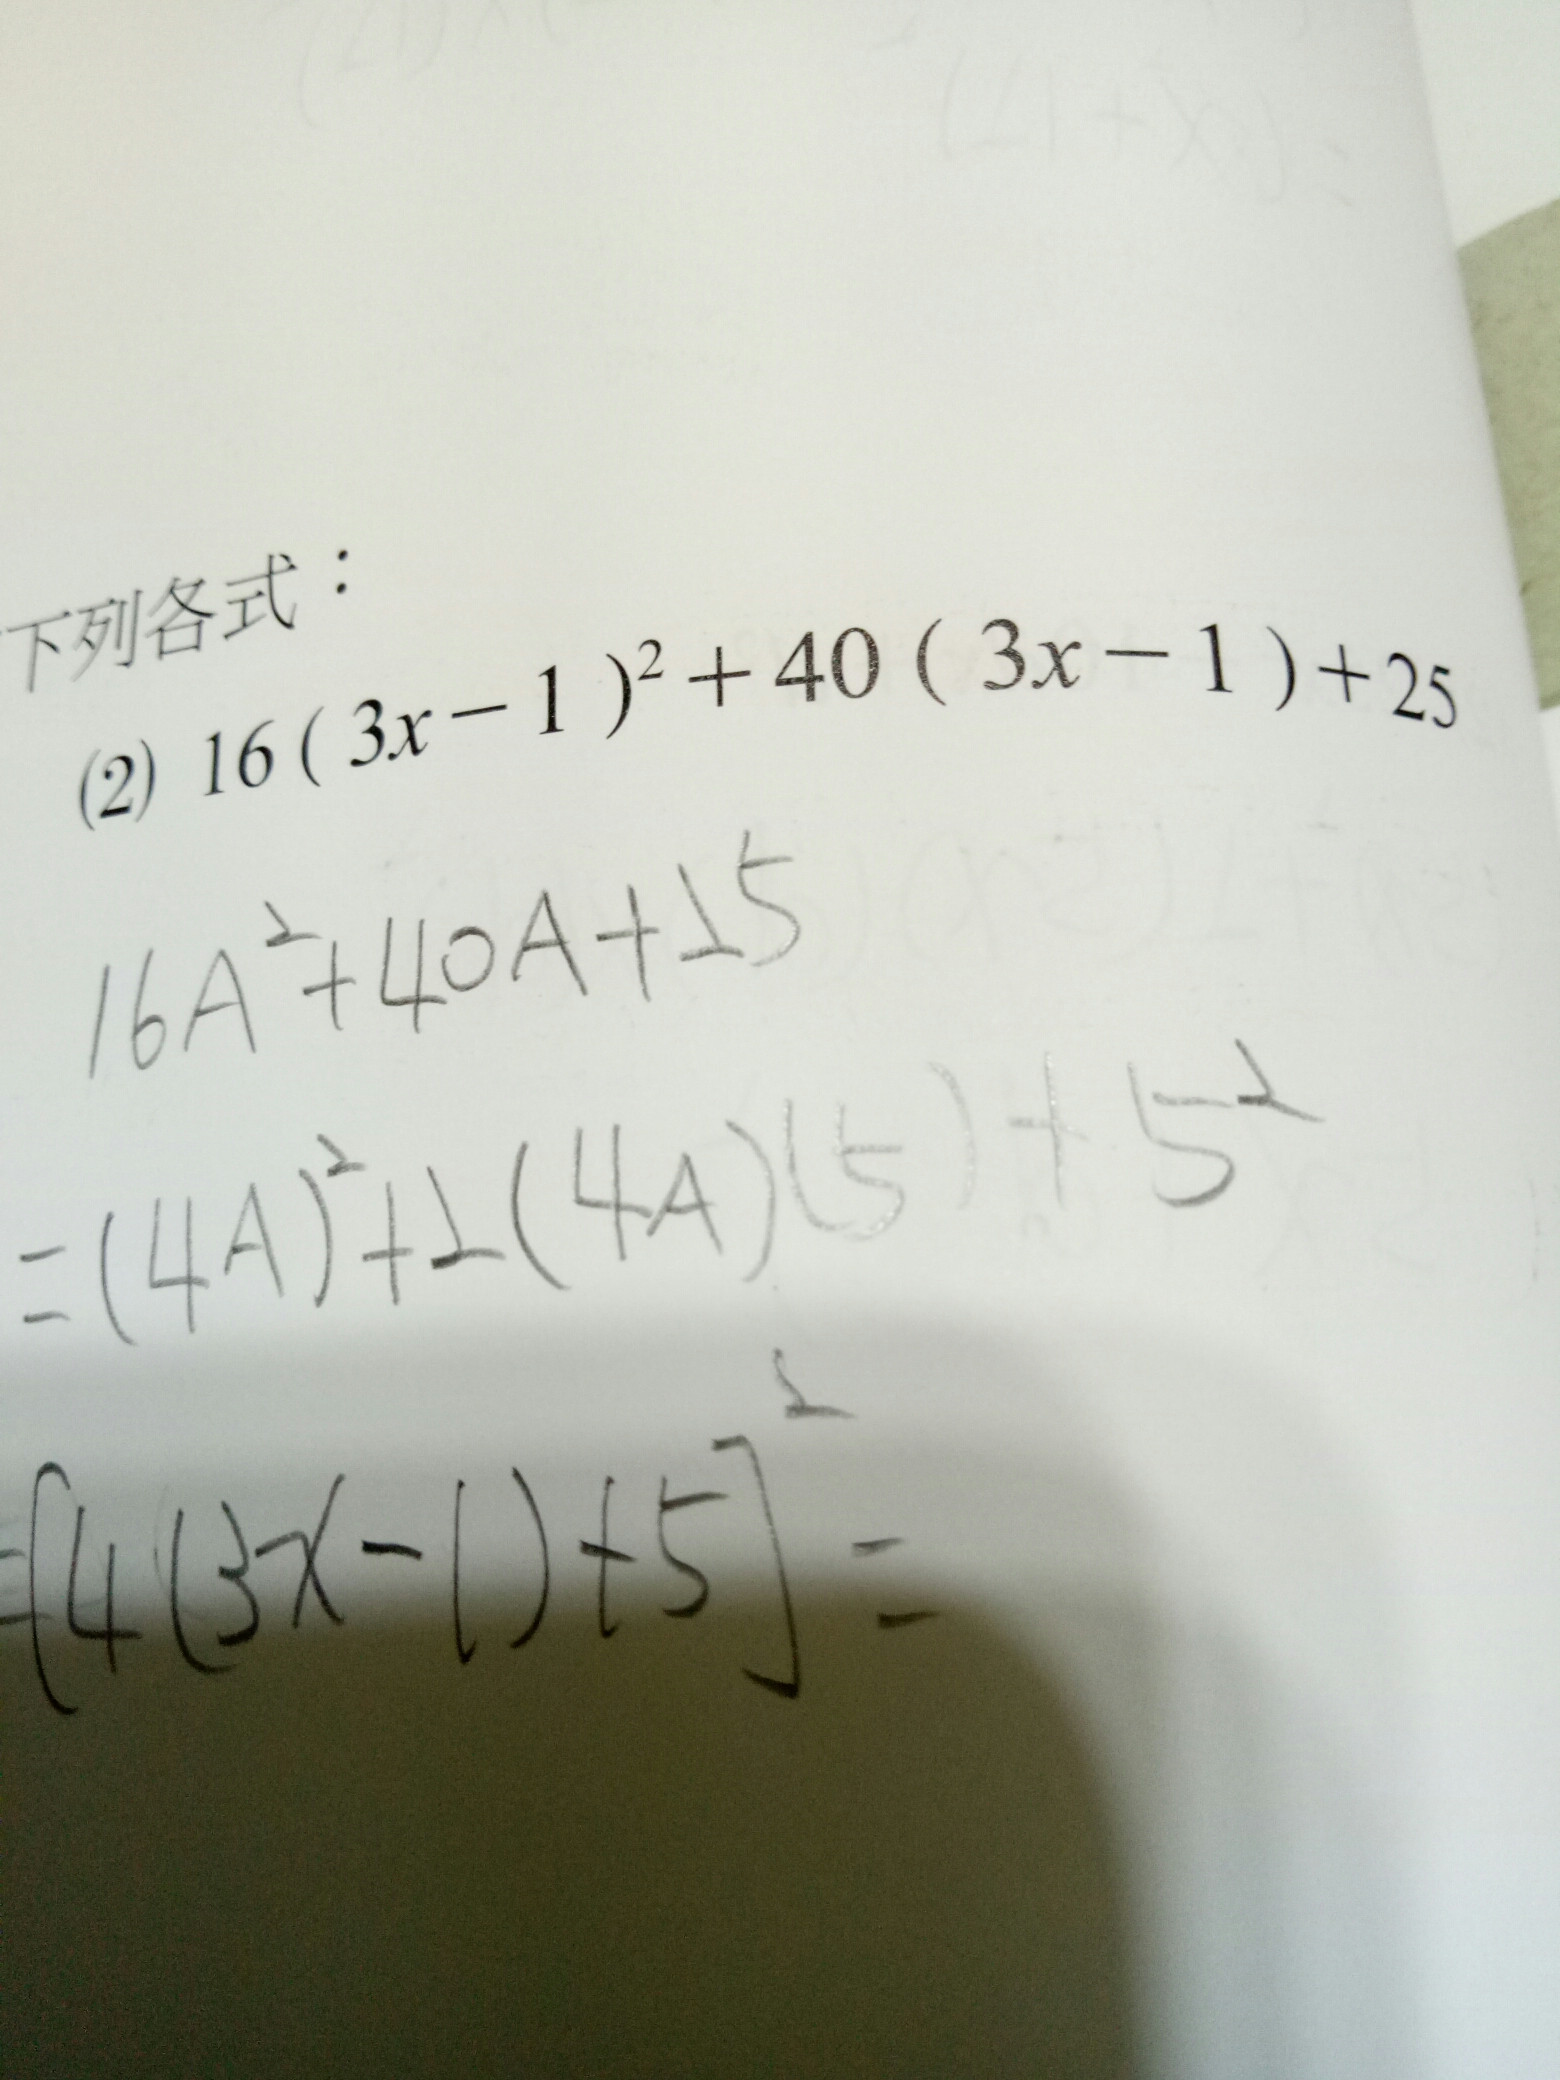 下列各式：
(2) 16(3x-1)²+40(3x-1)+25
16A²+40A+25
=(4A)²+2(4A)(5)+5²
=[4(3x-1)+5]²=